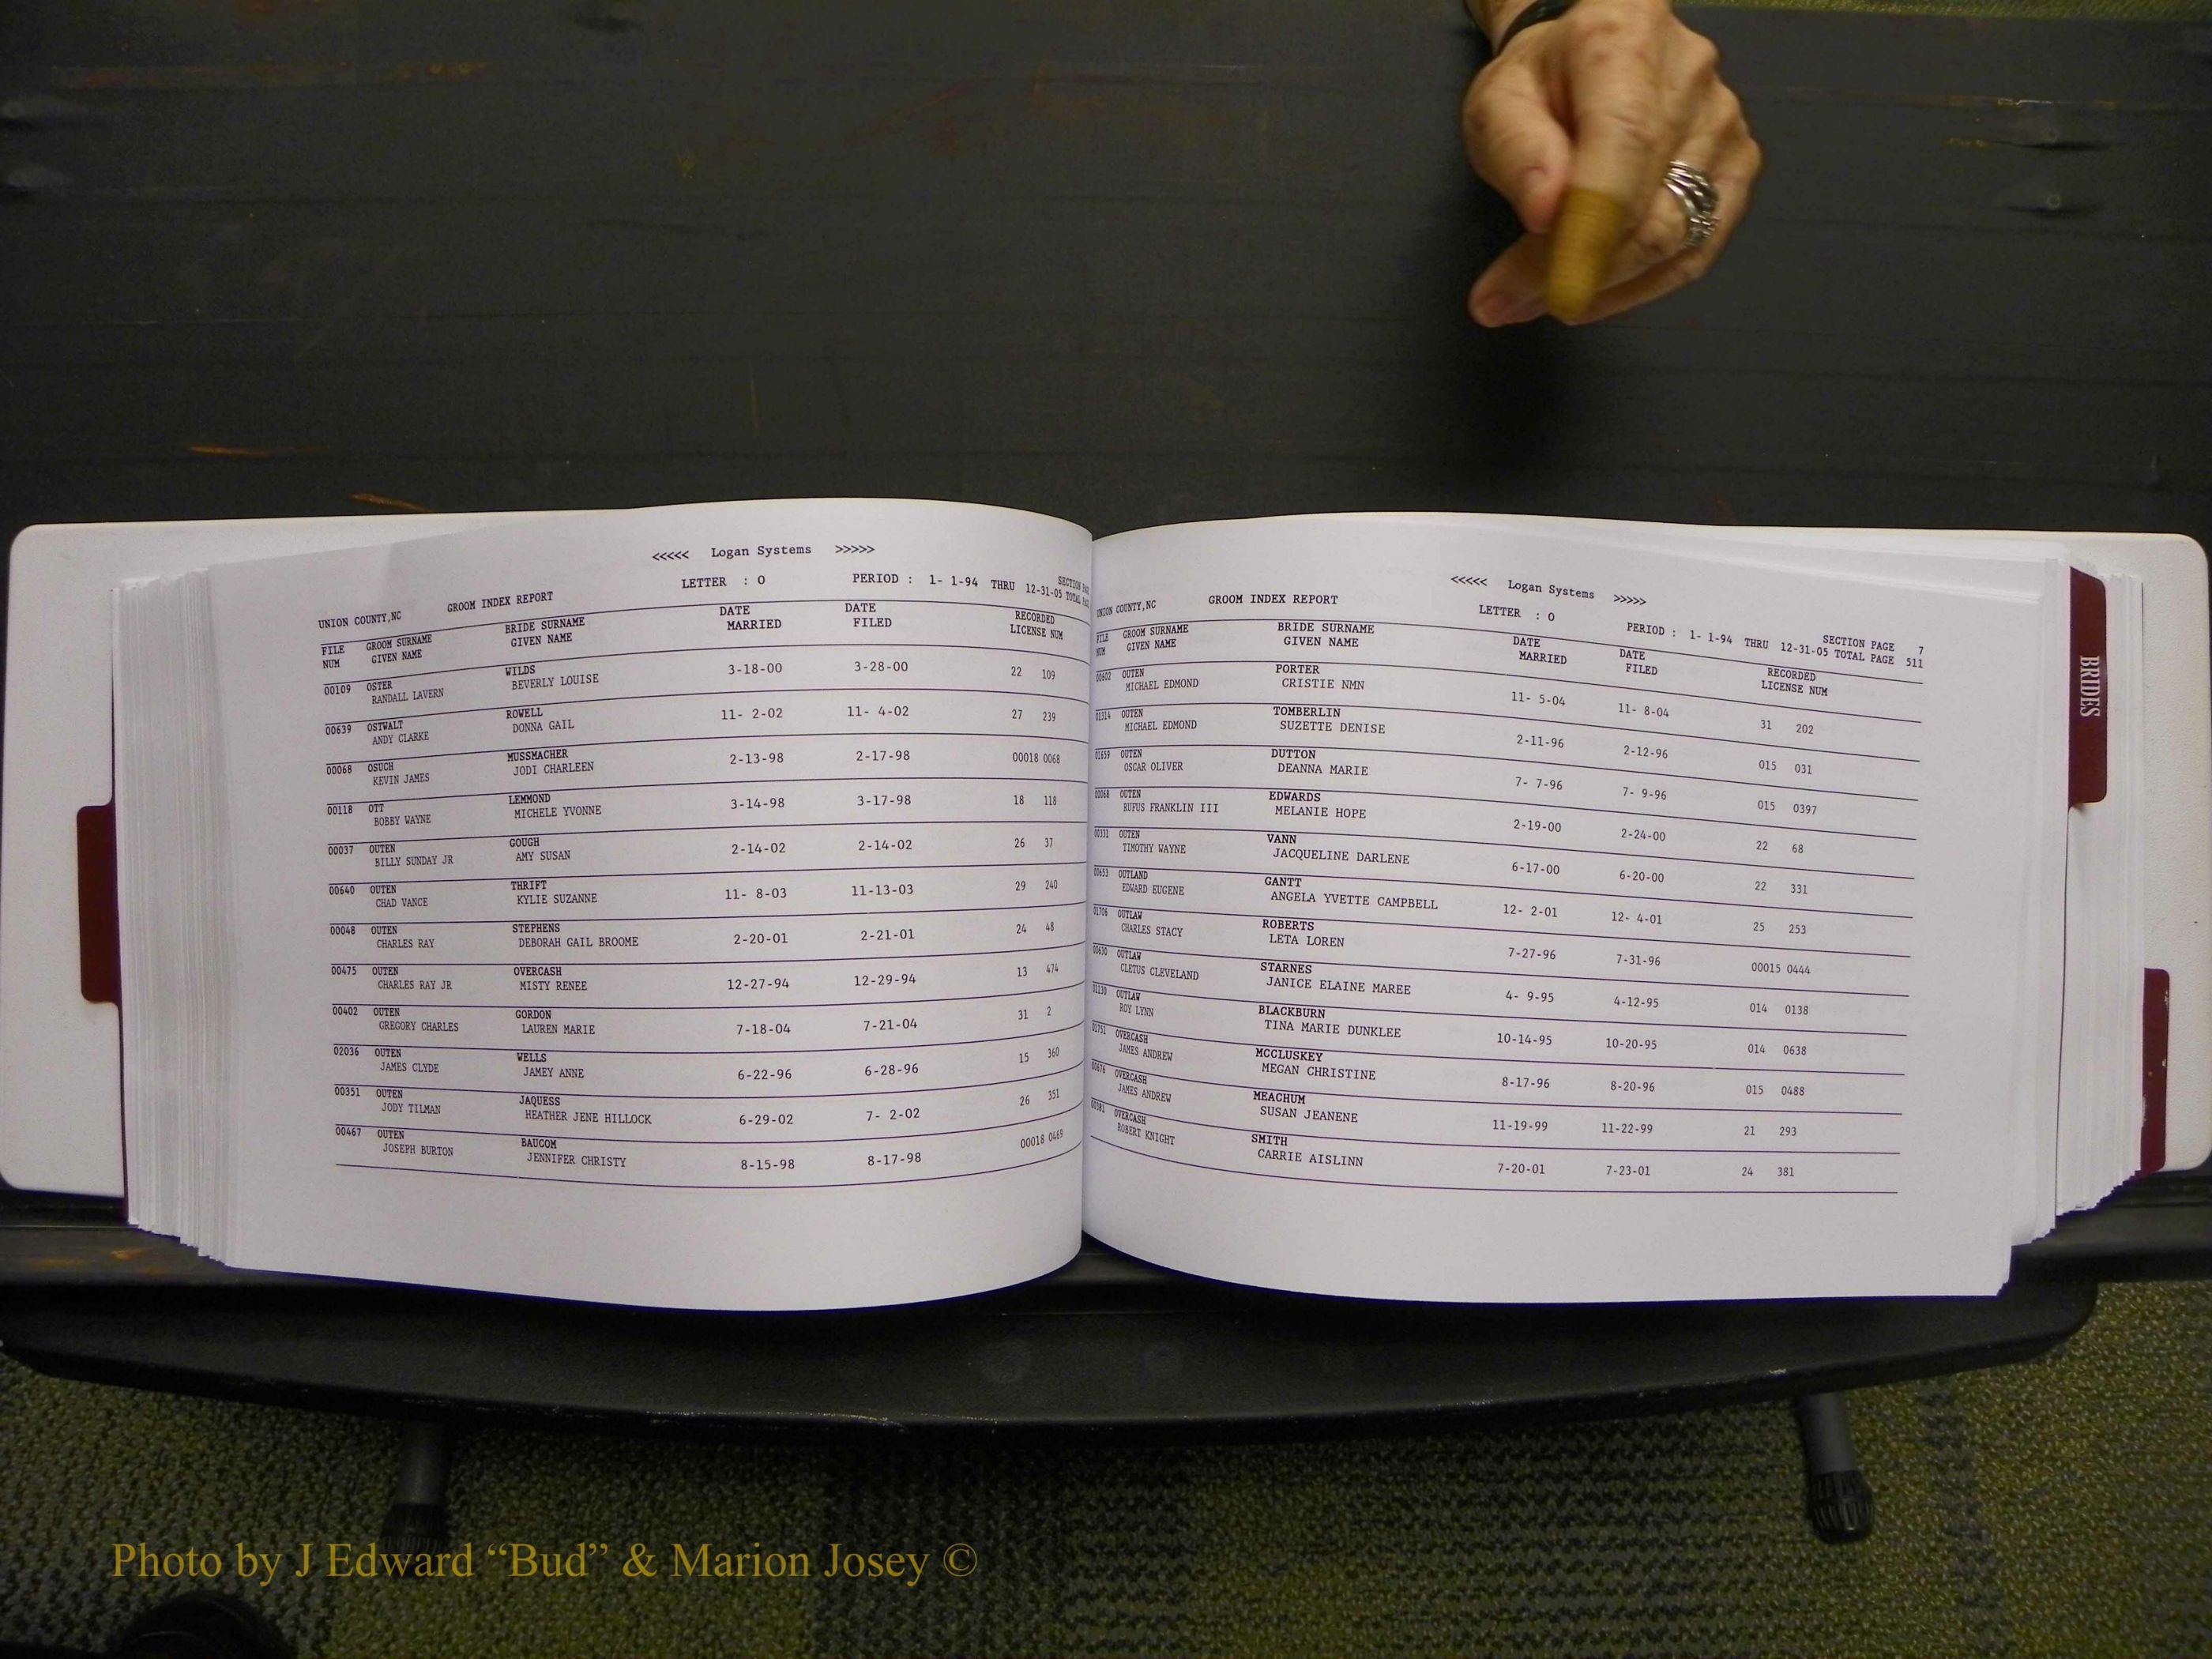 <<<<< Logan Systems >>>>>
UNION COUNTY,NC GROOM INDEX REPORT LETTER : O PERIOD : 1- 1-94 THRU 12-31-05 SECTION TOTAL
FILE NUM GROOM SURNAME GIVEN NAME BRIDE SURNAME GIVEN NAME DATE MARRIED DATE FILED RECORDED LICENSE NUM
00109 OSTER WILDS 3-18-00 3-28-00 22 109
RANDALL LAVERN BEVERLY LOUISE
00639 OSTWALT ROWELL 11- 2-02 11- 4-02 27 239
ANDY CLARKE DONNA GAIL
00068 OSUCH MUSSMACHER 2-13-98 2-17-98 00018 0068
KEVIN JAMES JODI CHARLEEN
00118 OTT LEMMOND 3-14-98 3-17-98 18 118
BOBBY WAYNE MICHELE YVONNE
00037 OUTEN GOUGH 2-14-02 2-14-02 26 37
BILLY SUNDAY JR AMY SUSAN
00640 OUTEN THRIFT 11- 8-03 11-13-03 29 240
CHAD VANCE KYLIE SUZANNE
00048 OUTEN STEPHENS 2-20-01 2-21-01 24 48
CHARLES RAY DEBORAH GAIL BROOME
00475 OUTEN OVERCASH 12-27-94 12-29-94 13 474
CHARLES RAY JR MISTY RENEE
00402 OUTEN GORDON 7-18-04 7-21-04 31 2
GREGORY CHARLES LAUREN MARIE
02036 OUTEN WELLS 6-22-96 6-28-96 15 360
JAMES CLYDE JAMEY ANNE
00351 OUTEN JAQUESS 6-29-02 7- 2-02 26 351
JODY TILMAN HEATHER JENE HILLOCK
00467 OUTEN BAUCOM 8-15-98 8-17-98 00018 0469
JOSEPH BURTON JENNIFER CHRISTY
<<<<< Logan Systems >>>>>
UNION COUNTY,NC GROOM INDEX REPORT LETTER : O PERIOD : 1- 1-94 THRU 12-31-05 SECTION PAGE 7 TOTAL PAGE 511
FILE NUM GROOM SURNAME GIVEN NAME BRIDE SURNAME GIVEN NAME DATE MARRIED DATE FILED RECORDED LICENSE NUM
00602 OUTEN PORTER 11- 5-04 11- 8-04 31 202
MICHAEL EDMOND CRISTIE NMN
01314 OUTEN TOMBERLIN 2-11-96 2-12-96 015 031
MICHAEL EDMOND SUZETTE DENISE
01659 OUTEN DUTTON 7- 7-96 7- 9-96 015 0397
OSCAR OLIVER DEANNA MARIE
00068 OUTEN EDWARDS 2-19-00 2-24-00 22 68
RUFUS FRANKLIN III MELANIE HOPE
00331 OUTEN VANN 6-17-00 6-20-00 22 331
TIMOTHY WAYNE JACQUELINE DARLENE
00653 OUTLAND GANTT 12- 2-01 12- 4-01 25 253
EDWARD EUGENE ANGELA YVETTE CAMPBELL
01706 OUTLAW ROBERTS 7-27-96 7-31-96 00015 0444
CHARLES STACY LETA LOREN
00630 OUTLAW STARNES 4- 9-95 4-12-95 014 0138
CLETUS CLEVELAND JANICE ELAINE MAREE
01130 OUTLAW BLACKBURN 10-14-95 10-20-95 014 0638
ROY LYNN TINA MARIE DUNKLEE
01751 OVERCASH MCCLUSKEY 8-17-96 8-20-96 015 0488
JAMES ANDREW MEGAN CHRISTINE
00676 OVERCASH MEACHUM 11-19-99 11-22-99 21 293
JAMES ANDREW SUSAN JEANENE
00381 OVERCASH SMITH 7-20-01 7-23-01 24 381
ROBERT KNIGHT CARRIE AISLINN
BRIDES
Photo by J Edward “Bud” & Marion Josey ©